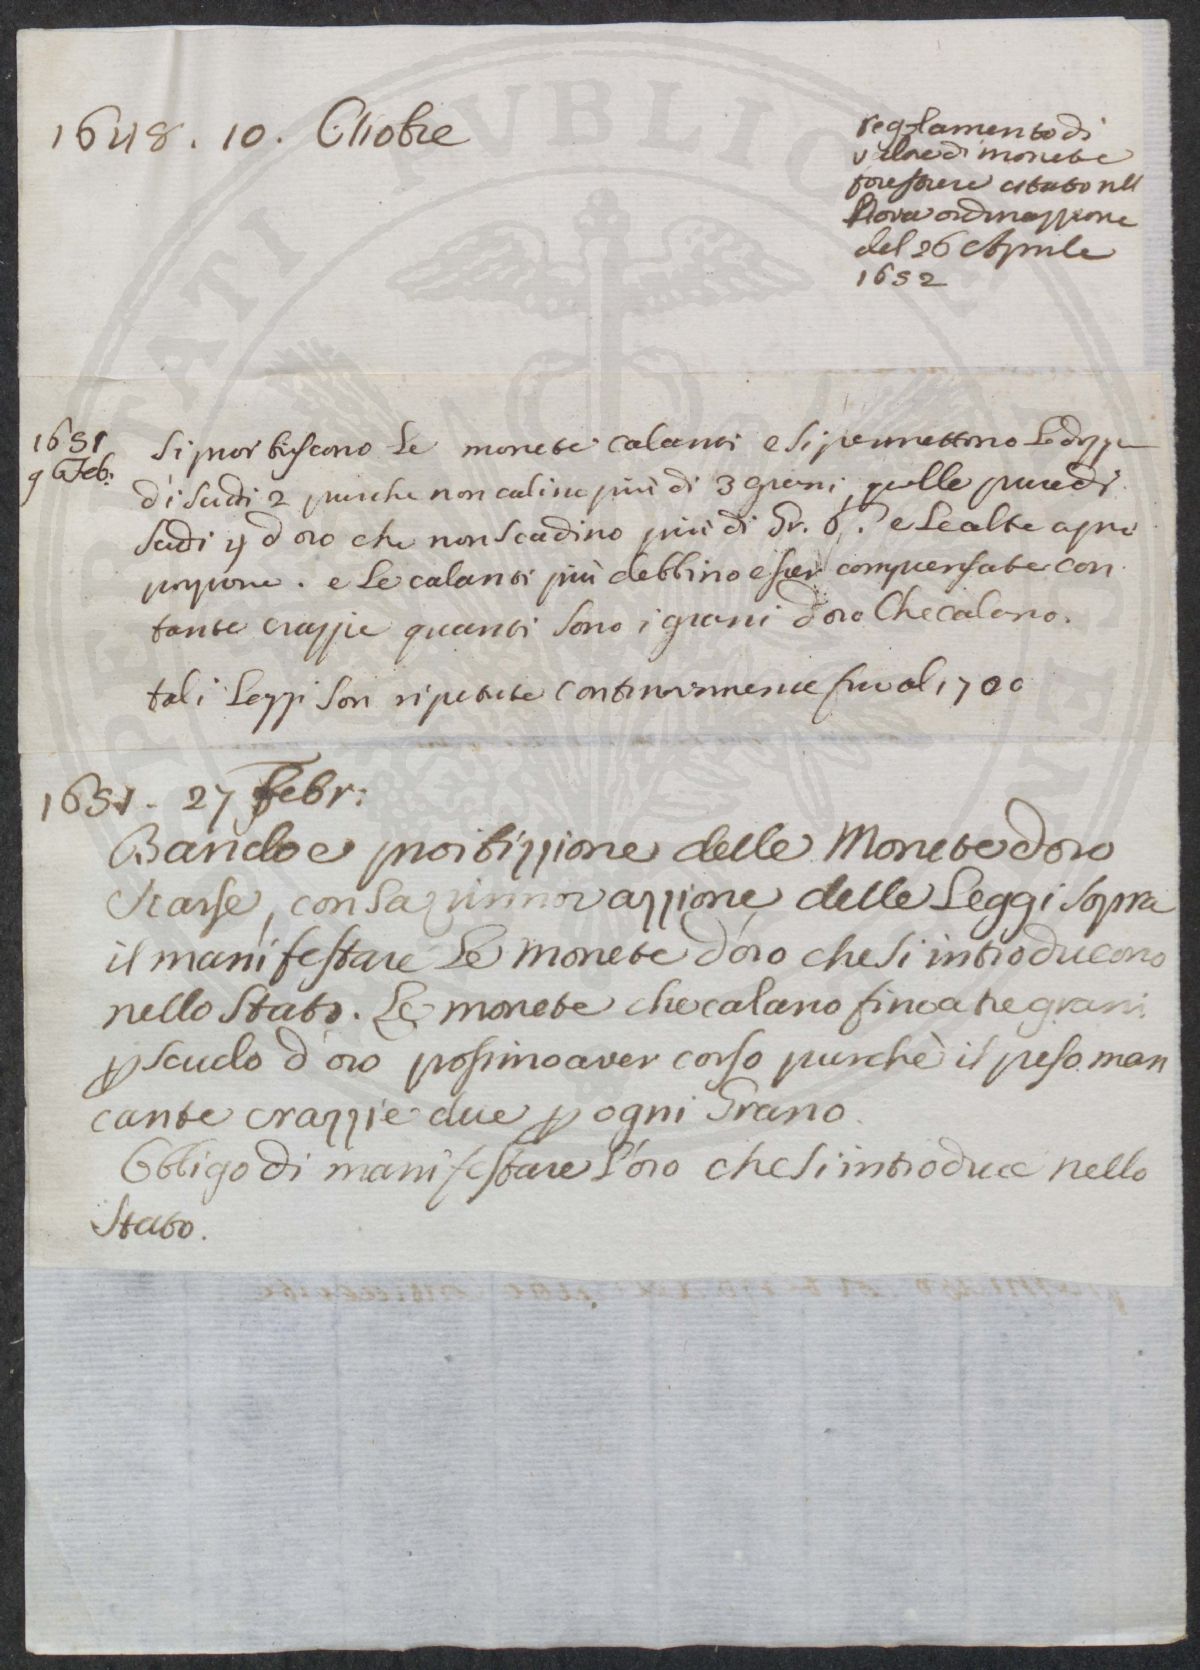 1648. 10. Ottobre
regolamento di
valore di monete
forestiere citato nell
Nova ordinazzione
del 26 Aprile
1652
1651
9 Feb:
Si proibiscono Le monete calanti e si permettono Le doppe
di Scudi 2 purche non calino più di 3 grani, quelle pure di
Scudi 4 d'oro che non Scadino più di Gr. 6. e Le altre a pro
porzione. e Le calanti più debbino esser compensate con
tante crazzie quanti Sono i grani d'oro Che calano.
tali Leggi Son ripetute continovamente fino al 1700
1651. 27 Febr:
Bando e proibizzione delle Monete d'oro
Scarse, con la rinnovazzione delle Leggi Sopra
il manifestare Le Monete d'oro che Si introducono
nello Stato. Le monete che calano fino a tre grani
p Scudo d'oro possino aver corso purchè il peso man
cante crazzie due p ogni Grano.
Obbligo di manifestare L'oro che Si introduce nello
Stato.
PUBLIC